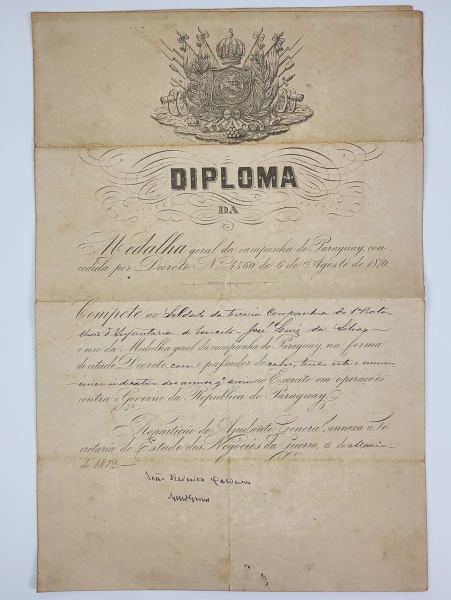 DIPLOMA
DA
Medalha geral da campanha do Paraguay, con-
cedida por Decreto Nº 4560 de 6 de Agosto de 1870.
Compete ao Soldado da terceira Companhia do 1º Bata-
lhão d'Infantaria do Exercito José Luiz da Silva
o uso da Medalha geral da campanha do Paraguay, na forma
do citado Decreto com o passador de cobre, tendo este o nume-
ro indicativo dos annos q' no Exercito em operações
contra o Governo da Republica do Paraguay.
Repartição de Ajudante General, annexa á Se-
cretaria de Estado dos Negocios da Guerra, 6 de
de 1872.
João Frederico